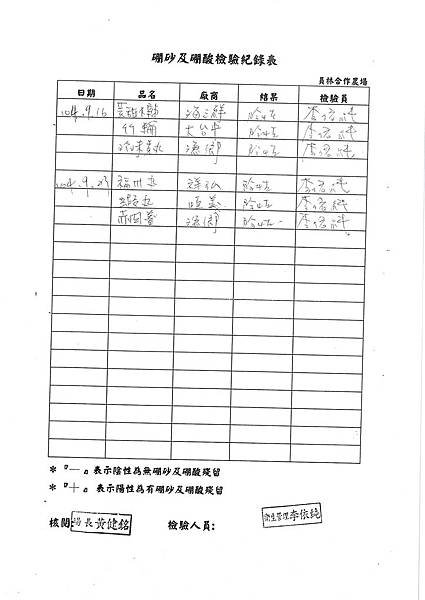 硼砂及硼酸檢驗紀錄表
員林合作農場
日期 品名 廠商 結果 檢驗員
104.9.16 海之鮮 陰性 李依純
竹輪 大台中 陰性 李依純
陰性 李依純
104.9.23 福州丸 祥弘 陰性 李依純
陰性 李依純
陰性 李依純
*『一』表示陰性為無硼砂及硼酸殘留
*『十』表示陽性為有硼砂及硼酸殘留
核閱: 場長黃健銘 檢驗人員: 衛生管理李依純